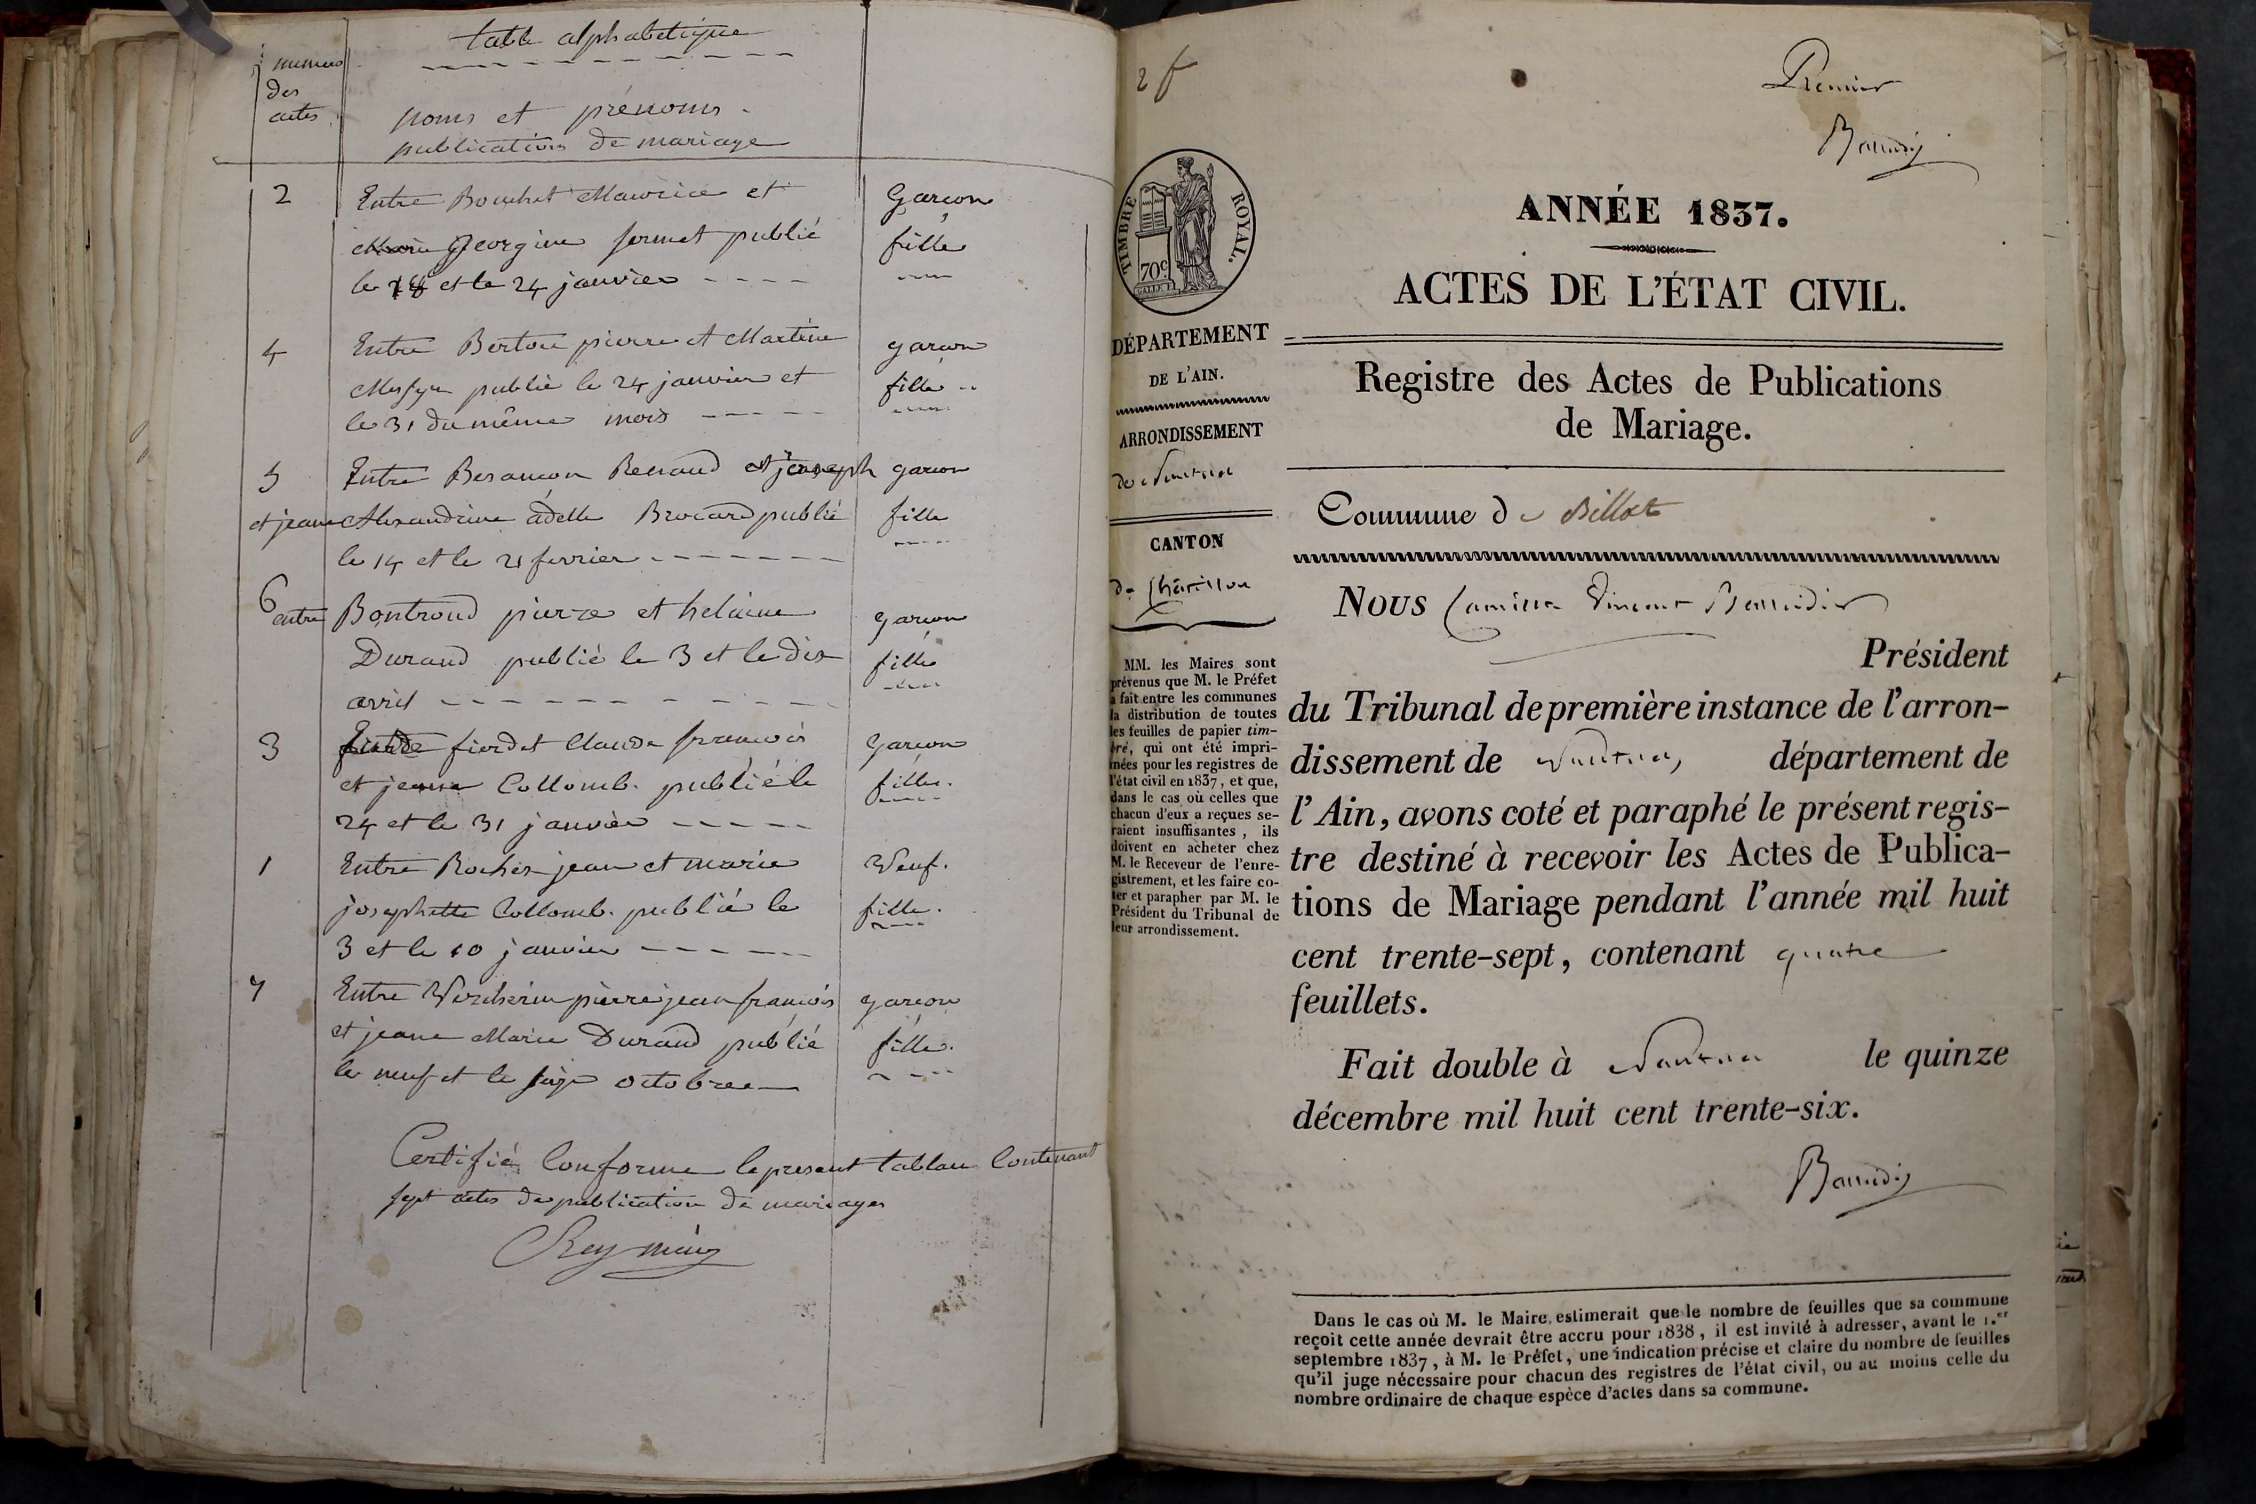 table alphabetique
numero
des
actes
noms et prénoms
publications de mariage
2 Entre Bouchet Maurice et Garcon
Georgine fermet publié fille
le 18 et le 24 janvier
4 Entre Berton pierre et Martine garcon
publié le 24 janvier et fille
le 31 du même mois
5 Entre Besancon Renaud joseph garcon
et jeane Alexandrine adelle Brocard publié fille
le 14 et le 21 fevrier
6 entre Bontrond pierre et helaine garcon
Durand publié le 3 et le dix fille
avril
3 fierdet Claude francois Garcon
et jeane Collomb. publié le fille.
24 et le 31 janvier
1 Entre Rochet jean et marie Veuf.
josephette Collomb. publié le fille.
3 et le 10 janvier
7 Entre Vercherin pierre jean francois garcon
et jeane Marie Durand publié fille.
le neuf et le seize octobre
Certifié Conforme le present tableau Contenant
sept actes de publication de mariages
Rey maire
2 f
Premier
TIMBRE ROYAL.
70c.
DÉPARTEMENT
DE L'AIN.
ARRONDISSEMENT
de Nantua
CANTON
de Châtillon
MM. les Maires sont
prévenus que M. le Préfet
a fait entre les communes
la distribution de toutes
les feuilles de papier tim-
bré, qui ont été impri-
mées pour les registres de
l'état civil en 1837, et que,
dans le cas où celles que
chacun d'eux a reçues se-
raient insuffisantes, ils
doivent en acheter chez
M. le Receveur de l'enre-
gistrement, et les faire co-
ter et parapher par M. le
Président du Tribunal de
leur arrondissement.
ANNÉE 1837.
ACTES DE L'ÉTAT CIVIL.
Registre des Actes de Publications
de Mariage.
Commune de Billiat
NOUS Camille Vincent Baudin
Président
du Tribunal de première instance de l'arron-
dissement de Nantua, département de
l'Ain, avons coté et paraphé le présent regis-
tre destiné à recevoir les Actes de Publica-
tions de Mariage pendant l'année mil huit
cent trente-sept, contenant quatre
feuillets.
Fait double à Nantua le quinze
décembre mil huit cent trente-six.
Dans le cas où M. le Maire estimerait que le nombre de feuilles que sa commune
reçoit cette année devrait être accru pour 1838, il est invité à adresser, avant le 1.er
septembre 1837, à M. le Préfet, une indication précise et claire du nombre de feuilles
qu'il juge nécessaire pour chacun des registres de l'état civil, ou au moins celle du
nombre ordinaire de chaque espèce d'actes dans sa commune.